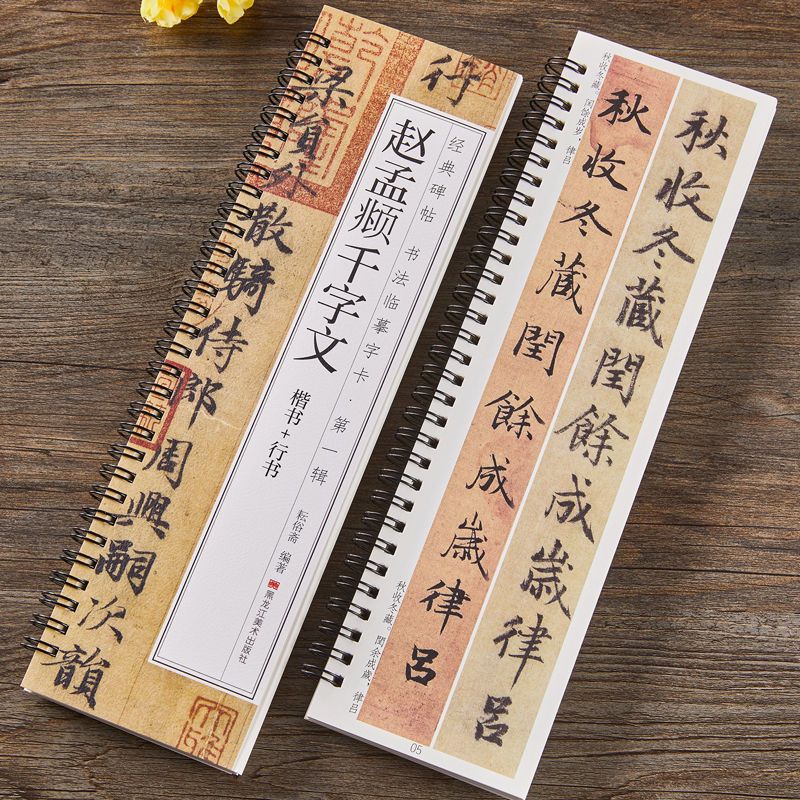 行
梁員外散騎侍郎周興嗣次韻
经典碑帖 书法临摹字卡·第一辑
赵孟𫖯千字文
楷书+行书
耘俗斋 编著
黑龙江美术出版社
秋收冬藏。闰馀成岁，律吕
秋收冬藏閏餘成歲律呂
秋收冬藏閏餘成歲律呂
秋收冬藏。閏余成歲，律吕
05